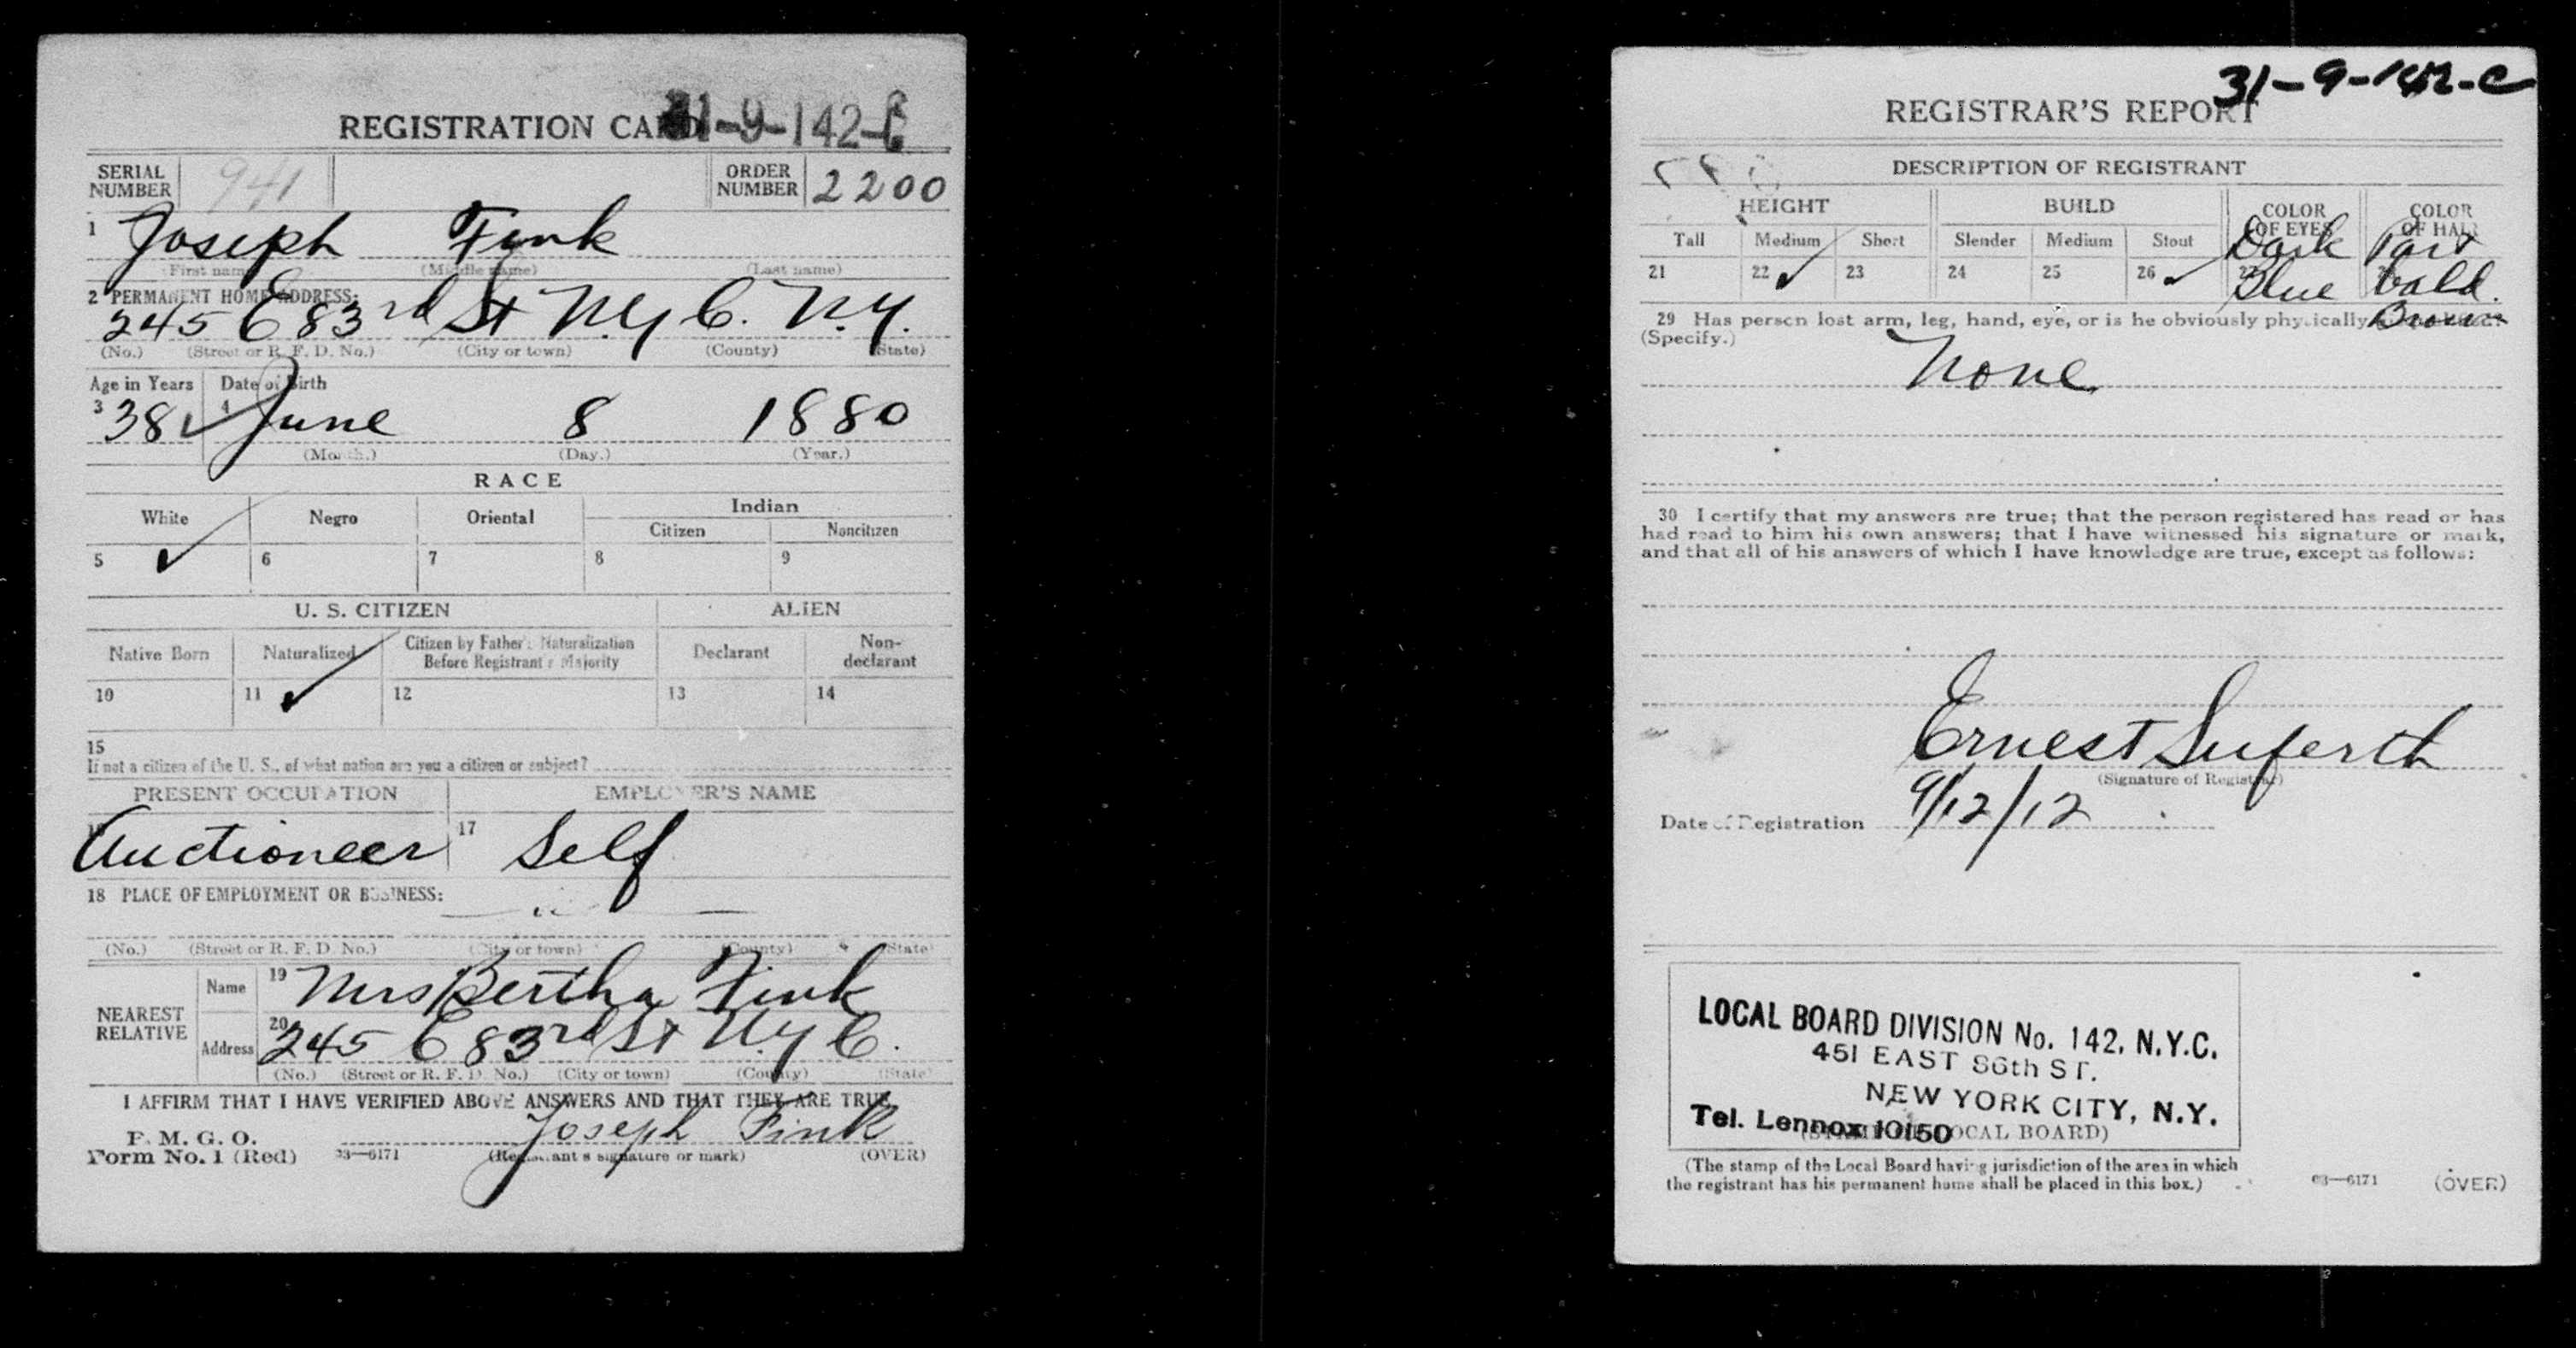 REGISTRATION CARD 31-9-142-C
SERIAL NUMBER 941 ORDER NUMBER 2200
1 Joseph Fink
(First name) (Middle name) (Last name)
2 PERMANENT HOME ADDRESS:
245 E 83rd St N.Y C. N.Y.
(No.) (Street or R. F. D. No.) (City or town) (County) (State)
Age in Years Date of Birth
3 38 4 June 8 1880
(Month.) (Day.) (Year.)
RACE
White Negro Oriental Indian
Citizen Noncitizen
5 ✓ 6 7 8 9
U. S. CITIZEN ALIEN
Native Born Naturalized Citizen by Father's Naturalization Before Registrant's Majority Declarant Non-declarant
10 11 ✓ 12 13 14
15
If not a citizen of the U. S., of what nation are you a citizen or subject?
PRESENT OCCUPATION EMPLOYER'S NAME
16 Auctioneer 17 Self
18 PLACE OF EMPLOYMENT OR BUSINESS:
(No.) (Street or R. F. D. No.) (City or town) (County) (State)
NEAREST RELATIVE
Name 19 Mrs Bertha Fink
Address 20 245 E 83rd St N.Y C.
(No.) (Street or R. F. D. No.) (City or town) (County) (State)
I AFFIRM THAT I HAVE VERIFIED ABOVE ANSWERS AND THAT THEY ARE TRUE
P. M. G. O.
Form No. 1 (Red) 03—6171 Joseph Fink
(Registrant's signature or mark) (OVER)
31-9-142-C
REGISTRAR'S REPORT
DESCRIPTION OF REGISTRANT
HEIGHT BUILD COLOR OF EYES COLOR OF HAIR
Tall Medium Short Slender Medium Stout
21 22 ✓ 23 24 25 26 ✓ 27 Dark Blue Part bald. Brown
29 Has person lost arm, leg, hand, eye, or is he obviously physically
(Specify.)
None
30 I certify that my answers are true; that the person registered has read or has
had read to him his own answers; that I have witnessed his signature or mark,
and that all of his answers of which I have knowledge are true, except as follows:
Ernest Suferth
(Signature of Registrar)
Date of Registration 9/12/12
LOCAL BOARD DIVISION No. 142, N.Y.C.
451 EAST 86th ST.
NEW YORK CITY, N.Y.
Tel. Lennox 10150
LOCAL BOARD)
(The stamp of the Local Board having jurisdiction of the area in which
the registrant has his permanent home shall be placed in this box.)
03—6171 (OVER)